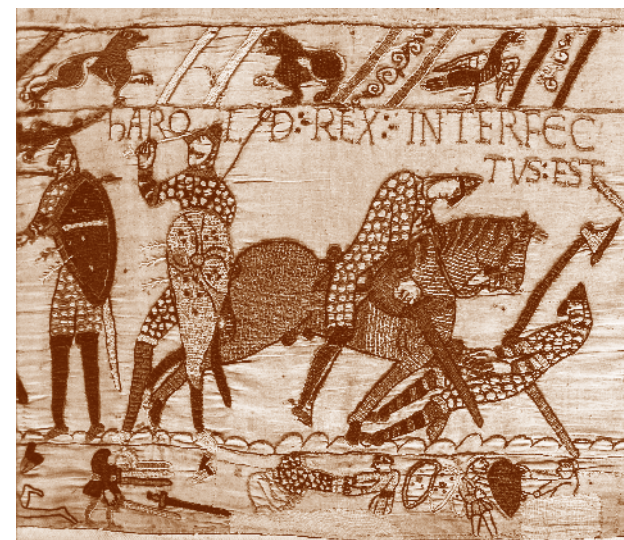 hARO L D:REX:INTERFEC
TVS:EST